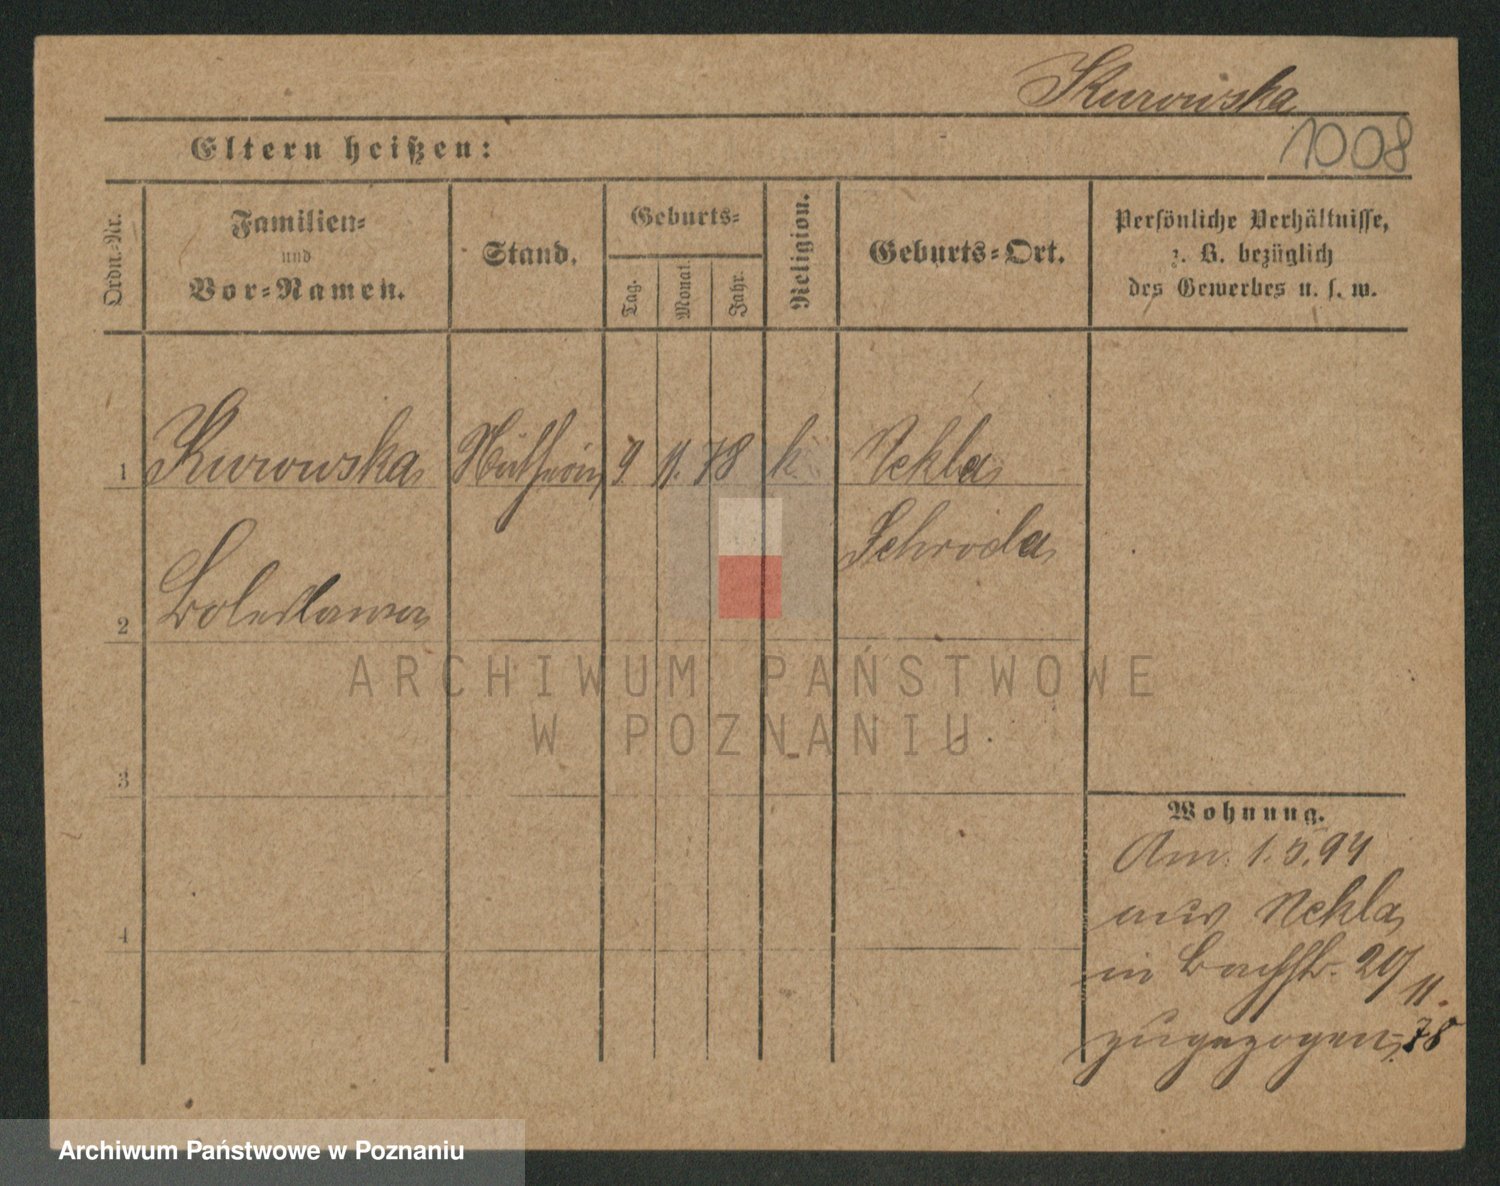 Kurowska
1008
Eltern heißen:
Ordn.-Nr.
Familien-
und
Vor-Namen.
Stand.
Geburts-
Tag.
Monat.
Jahr.
Religion.
Geburts-Ort.
Persönliche Verhältnisse,
z. B. bezüglich
des Gewerbes u. s. w.
1 Kurowska 9 11. 78 k. Nekla
Schroda
2 Boleslawa
3
4
Wohnung.
Am 1.5.94
aus Nekla
in Bachstr. 20/
11.
zugezogen 78
ARCHIWUM PAŃSTWOWE
W POZNANIU
Archiwum Państwowe w Poznaniu